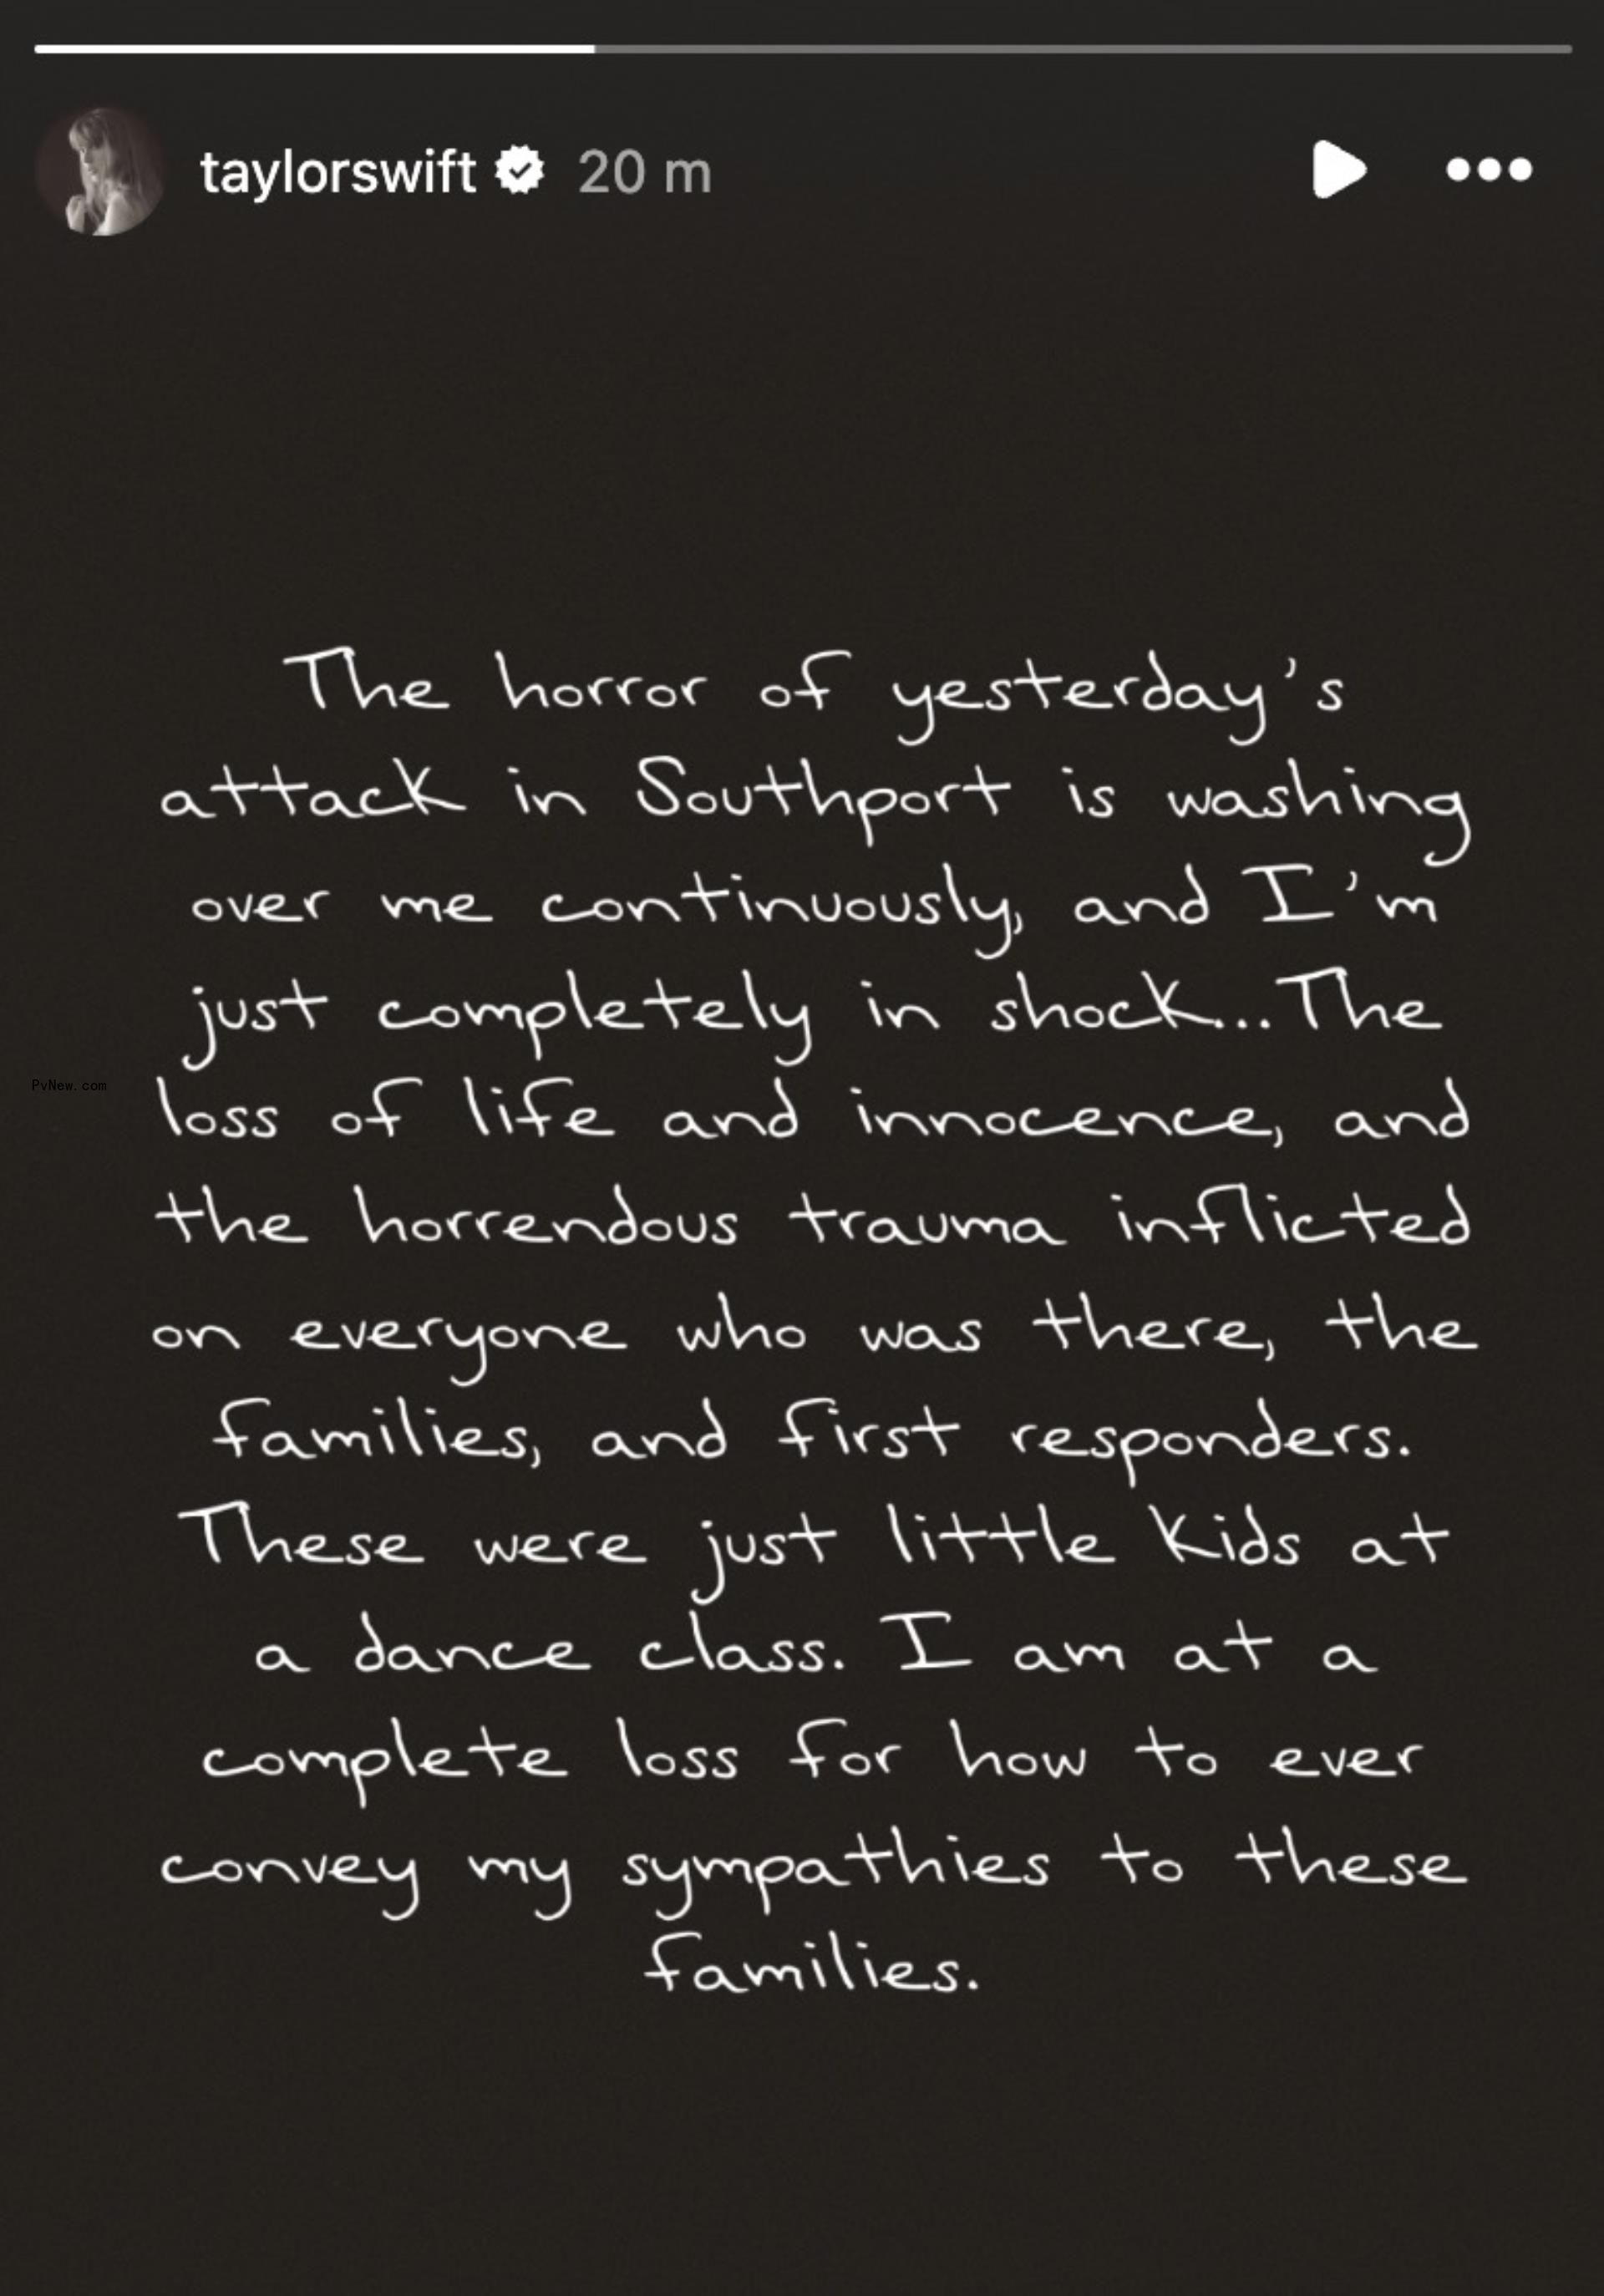 taylorswift 20 m
The horror of yesterday's
attack in Southport is washing
over me continuously, and I'm
just completely in shock...The
PvNew.com
loss of life and innocence, and
the horrendous trauma inflicted
on everyone who was there, the
families, and first responders.
These were just little kids at
a dance class. I am at a
complete loss for how to ever
convey my sympathies to these
families.